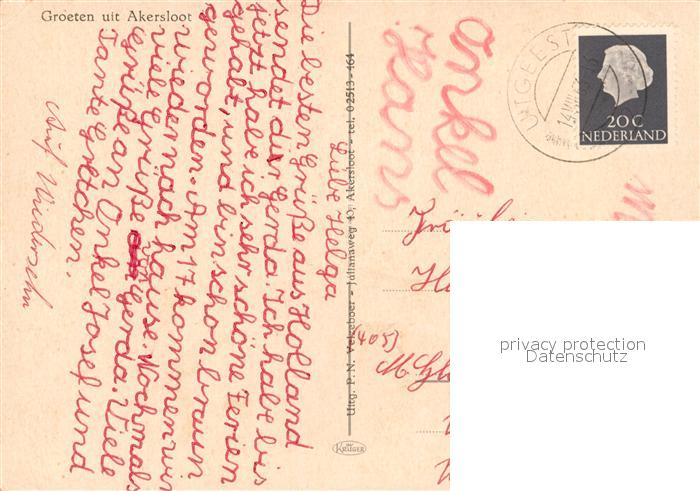 Groeten uit Akersloot
Liebe Helga
Die besten Grüße aus Holland
sendet dir Gerda. Ich habe bis
jetzt habe ich sehr schöne Ferien
gehabt, und bin schon braun
geworden. Am 17 kommen wir
wieder nach hause. Nochmals
viele Grüße von Gerda. Viele
Grüße an Onkel Josef und
Tante Gretchen.
Auf Wiedersehn
Onkel
Hans
Uitg. P. N. Velzeboer - Julianaweg 49, Akersloot - tel. 02513-464
KRÜGER
UITGEEST
20 C
NEDERLAND
(405)
M. Gl
privacy protection
Datenschutz